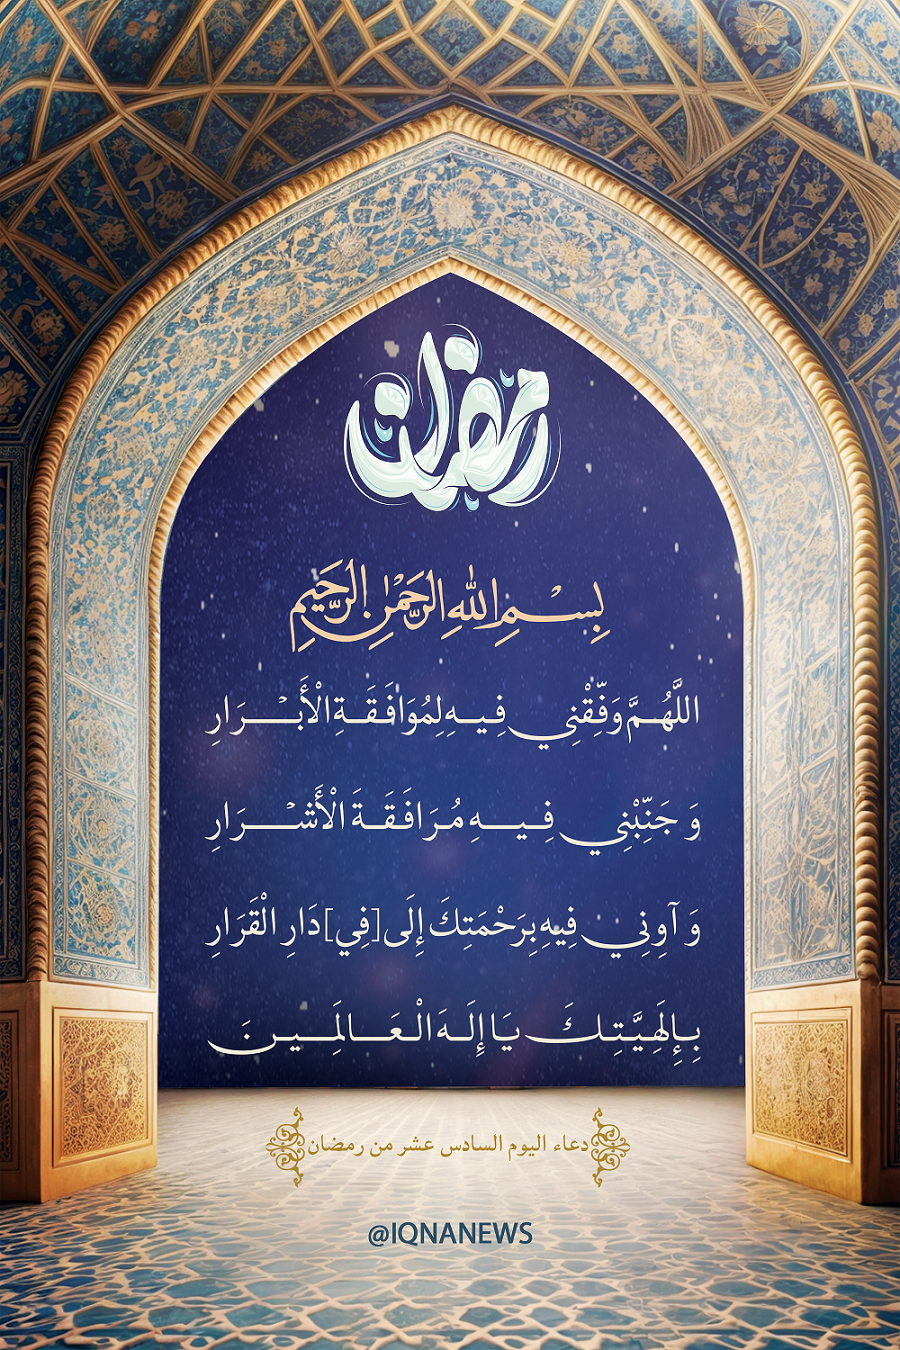 رمضان
بِسْمِ اللهِ الرَّحْمٰنِ الرَّحِيمِ
اللَّهُمَّ وَفِّقْنِي فِيهِ لِمُوَافَقَةِ الْأَبْرَارِ
وَ جَنِّبْنِي فِيهِ مُرَافَقَةَ الْأَشْرَارِ
وَ آوِنِي فِيهِ بِرَحْمَتِكَ إِلَى [فِي] دَارِ الْقَرَارِ
بِإِلَهِيَّتِكَ يَا إِلَهَ الْعَالَمِينَ
دعاء اليوم السادس عشر من رمضان
@IQNANEWS